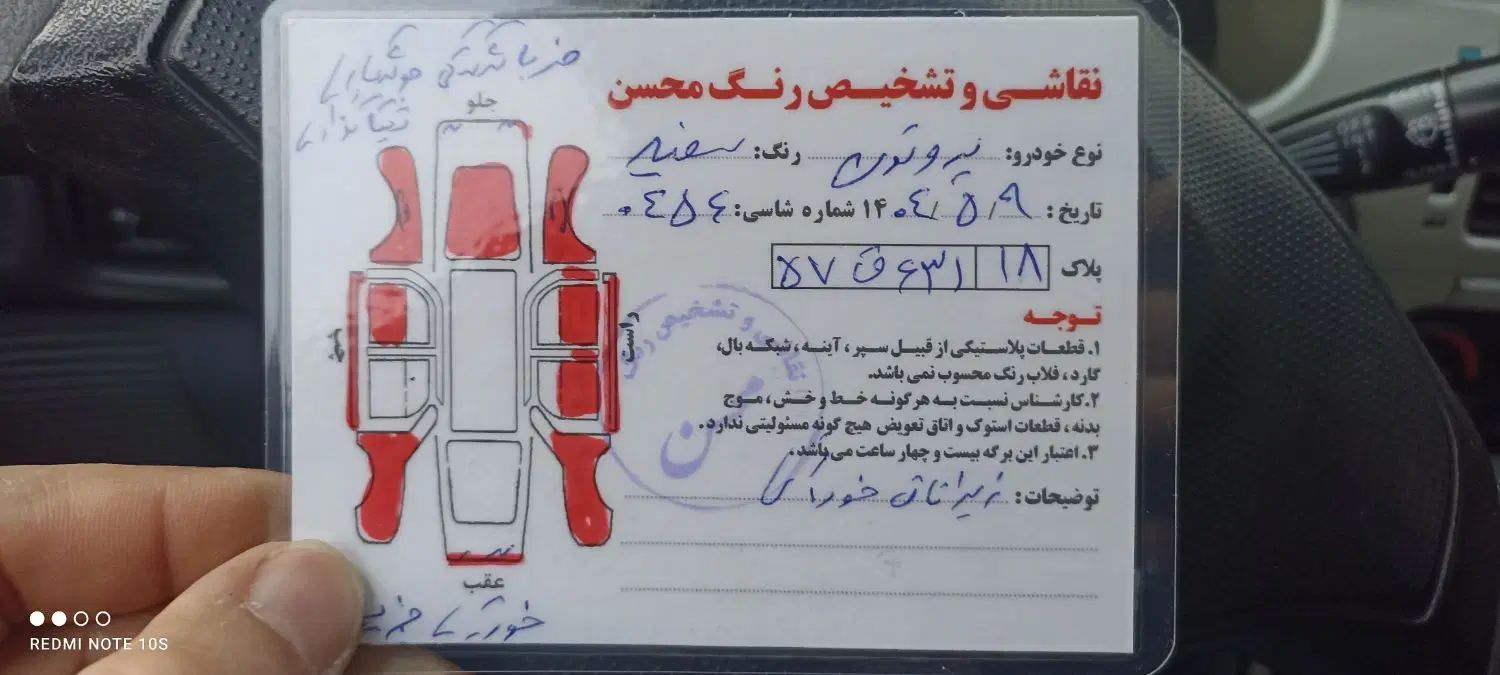 جلو
نقاشی و تشخیص رنگ محسن
نوع خودرو: پروتون رنگ: سفید
تاریخ: ۱۴۰۴/۵/۹ شماره شاسی: ۰۴۵۶
پلاک ۱۸ ۶۳۱ ق ۵۷
توجه
۱. قطعات پلاستیکی از قبیل سپر، آینه، شبکه بال،
گارد، قلاب رنگ محسوب نمی باشد.
۲. کارشناس نسبت به هرگونه خط و خش، موج
بدنه، قطعات استوک و اتاق تعویض هیچ گونه مسئولیتی ندارد.
۳. اعتبار این برگه بیست و چهار ساعت می باشد.
توضیحات: زیر اتاق خوردگی
راست
چپ
عقب
نقاشی و تشخیص رنگ
محسن
REDMI NOTE 10S